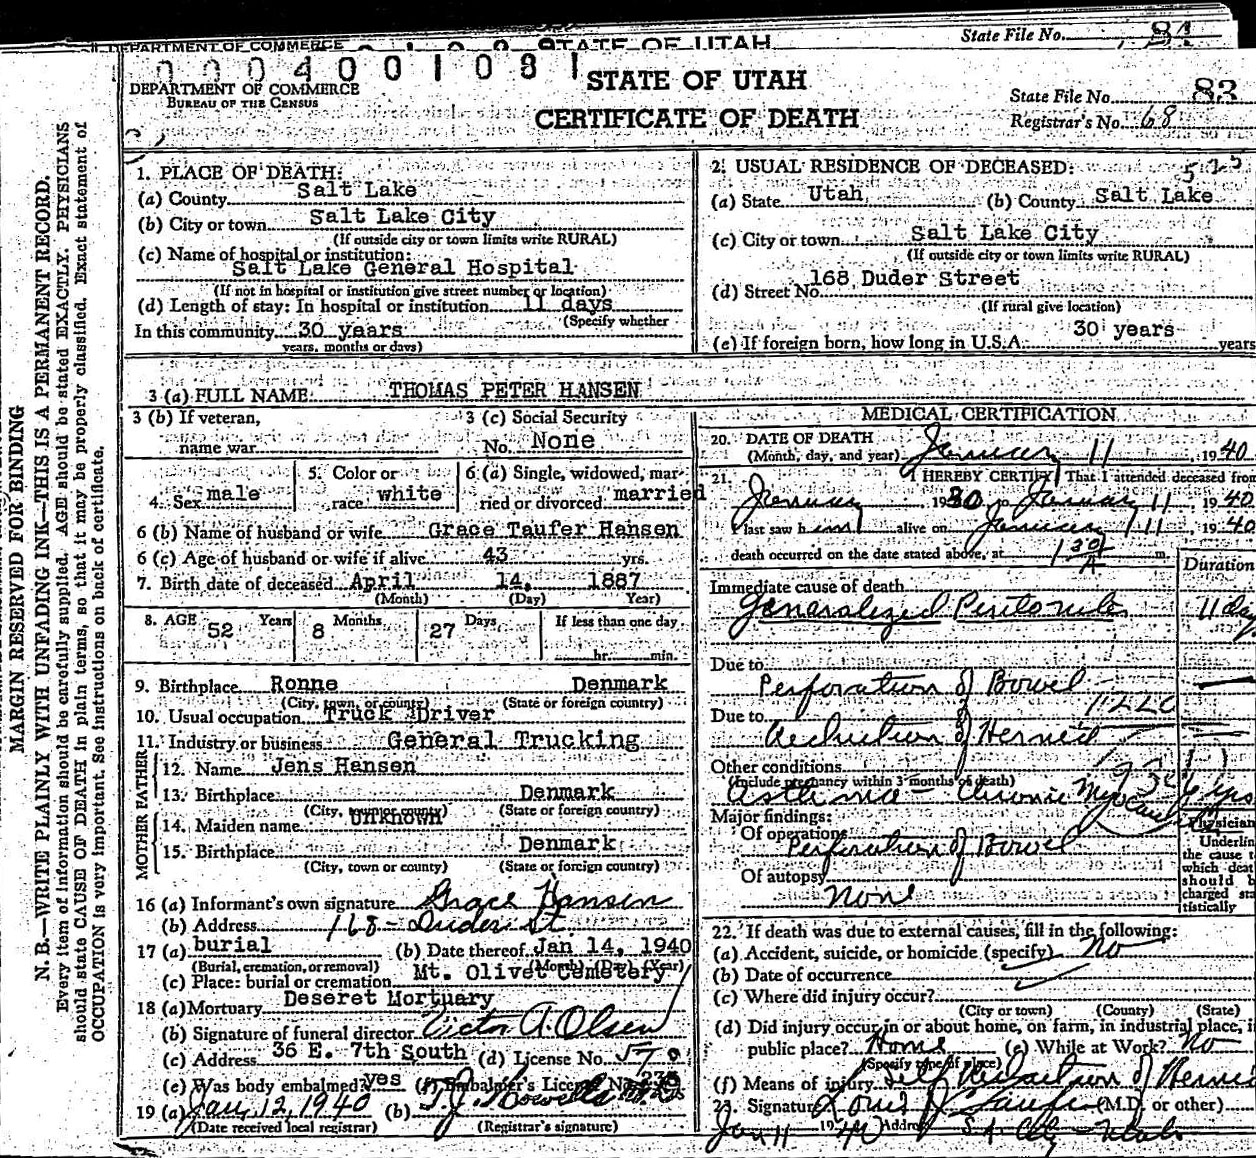 DEPARTMENT OF COMMERCE STATE OF UTAH State File No. 84
0 0 0 4 0 0 1 0 8 1
DEPARTMENT OF COMMERCE
BUREAU OF THE CENSUS
STATE OF UTAH
CERTIFICATE OF DEATH
State File No. 83
Registrar's No. 68
MARGIN RESERVED FOR BINDING
N. B.—WRITE PLAINLY WITH UNFADING INK—THIS IS A PERMANENT RECORD.
Every item of information should be carefully supplied. AGE should be stated EXACTLY. PHYSICIANS
should state CAUSE OF DEATH in plain terms, so that it may be properly classified. Exact statement of
OCCUPATION is very important. See instructions on back of certificate.
1. PLACE OF DEATH:
(a) County Salt Lake
(b) City or town Salt Lake City
(If outside city or town limits write RURAL)
(c) Name of hospital or institution:
Salt Lake General Hospital
(If not in hospital or institution give street number or location)
(d) Length of stay: In hospital or institution 11 days
(Specify whether
In this community 30 years
years, months or days)
2. USUAL RESIDENCE OF DECEASED:
(a) State Utah (b) County Salt Lake
(c) City or town Salt Lake City
(If outside city or town limits write RURAL)
(d) Street No. 168 Duder Street
(If rural give location)
(e) If foreign born, how long in U.S.A. 30 years years
3 (a) FULL NAME THOMAS PETER HANSEN
3 (b) If veteran,
name war
3 (c) Social Security
No. None
4. Sex male
5. Color or
race white
6 (a) Single, widowed, mar-
ried or divorced married
6 (b) Name of husband or wife Grace Taufer Hansen
6 (c) Age of husband or wife if alive 43 yrs.
7. Birth date of deceased April 14, 1887
(Month) (Day) Year)
8. AGE 52 Years 8 Months 27 Days If less than one day
hr. min.
9. Birthplace Ronne Denmark
(City, town, or county) (State or foreign country)
10. Usual occupation Truck Driver
11. Industry or business General Trucking
MOTHER FATHER
12. Name Jens Hansen
13. Birthplace Denmark
(City, town or county) (State or foreign country)
14. Maiden name Unknown
15. Birthplace Denmark
(City, town or county) (State or foreign country)
16 (a) Informant's own signature Grace Hansen
(b) Address 168 - Duder St.
17 (a) burial (b) Date thereof Jan 14, 1940
(Burial, cremation, or removal) (Month) (Day) (Year)
(c) Place: burial or cremation Mt. Olivet Cemetery
18 (a) Mortuary Deseret Mortuary
(b) Signature of funeral director Victor A. Olsen
(c) Address 36 E. 7th South (d) License No. 570
(e) Was body embalmed? yes (f) Embalmer's License No.
19 (a) Jan, 12, 1940 (b) T. J. Howells
(Date received local registrar) (Registrar's signature)
MEDICAL CERTIFICATION
20. DATE OF DEATH
(Month, day, and year) January 11 1940
21. I HEREBY CERTIFY That I attended deceased from
January 1940 to January 11, 1940
I last saw him alive on January 11 1940
death occurred on the date stated above, at 1 30 A m.
Duration
Immediate cause of death
Generalized Peritonitis 11 day
Due to
Perforation of Bowel
Due to 122C
Reduction of Hernia
Other conditions
(Include pregnancy within 3 months of death)
Asthma - Chronic Myocarditis 6 yrs
Major findings:
Of operations
Perforation of Bowel
Of autopsy
None
Physician
Underlin
the cause t
which deat
should b
charged sta
tistically
22. If death was due to external causes, fill in the following:
(a) Accident, suicide, or homicide (specify) No
(b) Date of occurrence
(c) Where did injury occur?
(City or town) (County) (State)
(d) Did injury occur in or about home, on farm, in industrial place, i
public place? Home (e) While at Work? No
(Specify type of place)
(f) Means of injury Self Reduction of Hernia
23. Signature Louis J. Taufer (M.D. or other)
Jan 11 1940 Address S. L. City - Utah